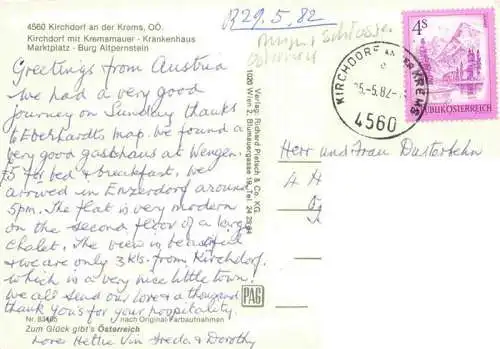 4560 Kirchdorf an der Krems, OÖ.
Kirchdorf mit Kremsmauer - Krankenhaus
Marktplatz - Burg Altpernstein
R 29.5.82
4S
REPUBLIK ÖSTERREICH
KIRCHDORF AN DER KREMS
-5.82-
4560
Greetings from Austria
We had a very good
journey on Sunday thanks
to Eberhardts map. We found a
very good gasthaus at Wengen.
£5 for bed & breakfast. We
arrived in Enzerdorf around
5pm. The flat is very modern
on the second floor of a large
chalet. The view is beautiful
& we are only 3 kts. from Kirchdorf.
which is a very nice little town.
We all send our love & a thousand
thank you's for your hospitality.
Love Hettie Vin Freda & Dorothy
Verlag: Richard Pietsch & Co. KG
1020 Wien 2, Blumauergasse 19, Tel. 24 23 84
Herr und Frau Dusterhehn
PAG
Nr. 83465 nach Original-Farbaufnahmen
Zum Glück gibt's Österreich